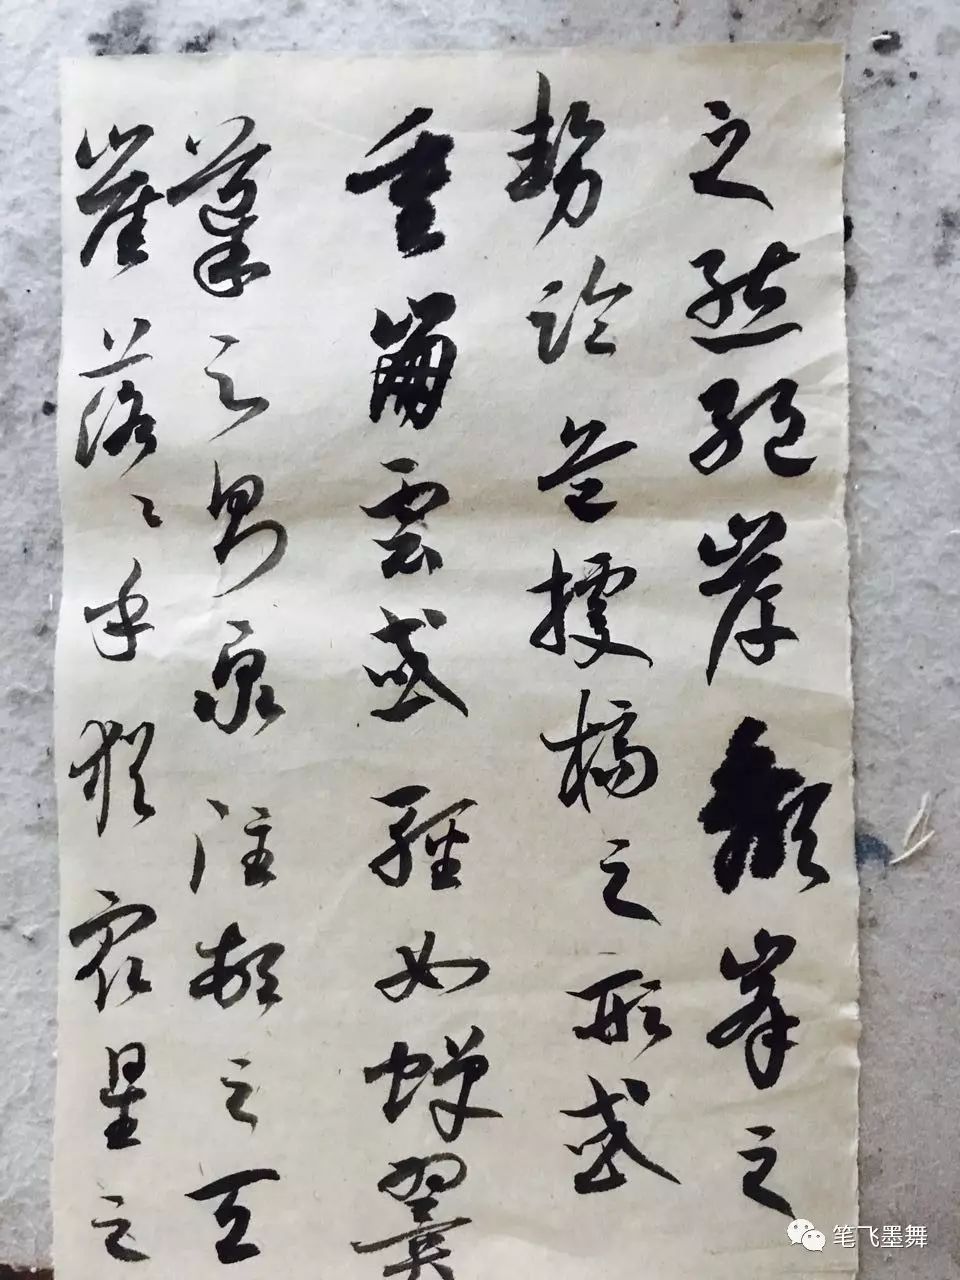 之態絕岸頹峯之
勢臨危據槁之形或
重崩雲或輕如蟬翼
導之則泉注頓之天
崖落々乎猶眾星之
笔飞墨舞